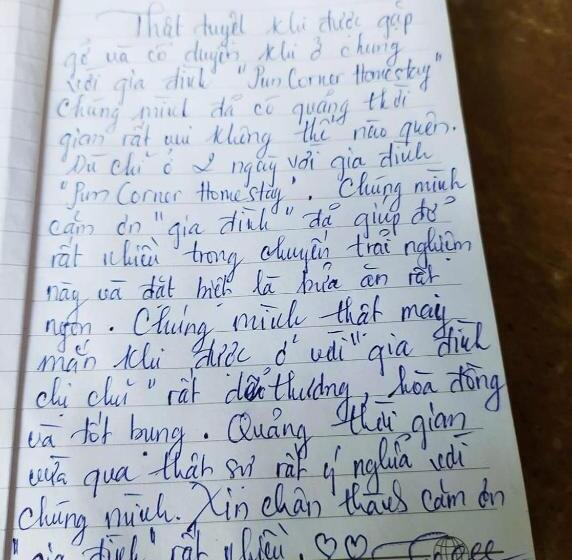 Thật tuyệt khi được gặp
gỡ và có duyên khi ở chung
với gia đình "Pun Corner Homestay"
Chúng mình đã có quãng thời
gian rất vui không thể nào quên.
Dù chỉ ở 2 ngày với gia đình
"Pun Corner Homestay". Chúng mình
cảm ơn "gia đình" đã giúp đỡ
rất nhiều trong chuyến trải nghiệm
này và đặt biệt là bữa ăn rất
ngon. Chúng mình thật may
mắn khi được ở với "gia đình
chị chi" rất dễ thương, hòa đồng
và tốt bụng. Quảng thời gian
vừa qua thật sự rất ý nghĩa với
chúng mình. Xin chân thành cảm ơn
"gia đình" rất nhiều. ♡♡